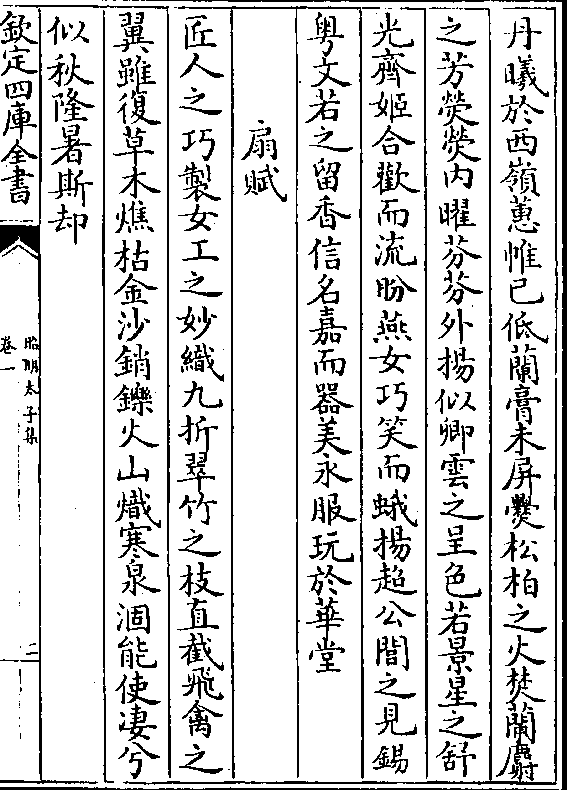 丹曦於西嶺蕙帷已低蘭膏未屏爨松柏之火焚蘭麝
之芳熒熒内曜芬芬外揚似卿雲之呈色若景星之舒
光齊姬合歡而流盼燕女巧笑而蛾揚超公聞之見錫
粤文若之留香信名嘉而器美永服玩於華堂
扇賦
匠人之巧製女工之妙織九折翠竹之枝直截飛禽之
翼雖復草木燋枯金沙銷鑠火山熾寒泉涸能使凄兮
似秋隆暑斯却
欽定四庫全書
昭明太子集
卷一
二